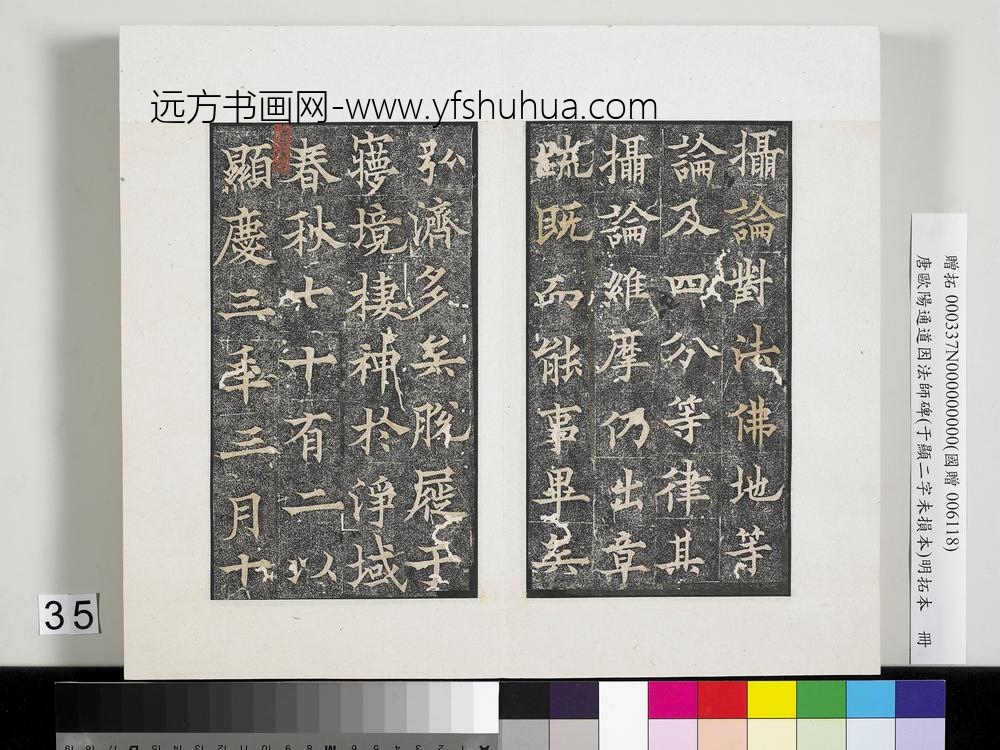 远方书画网-www.yfshuhua.com
攝論對法佛地等
論及四分等律其
攝論維摩仍出章
疏既而能事畢矣
弘濟多矣脫屣于
㝱境棲神於淨域
春秋七十有二以
顯慶三年三月十
贈拓 000337N000000000(國贈 006118)
唐歐陽通道因法師碑(于顯二字未損本)明拓本 冊
35